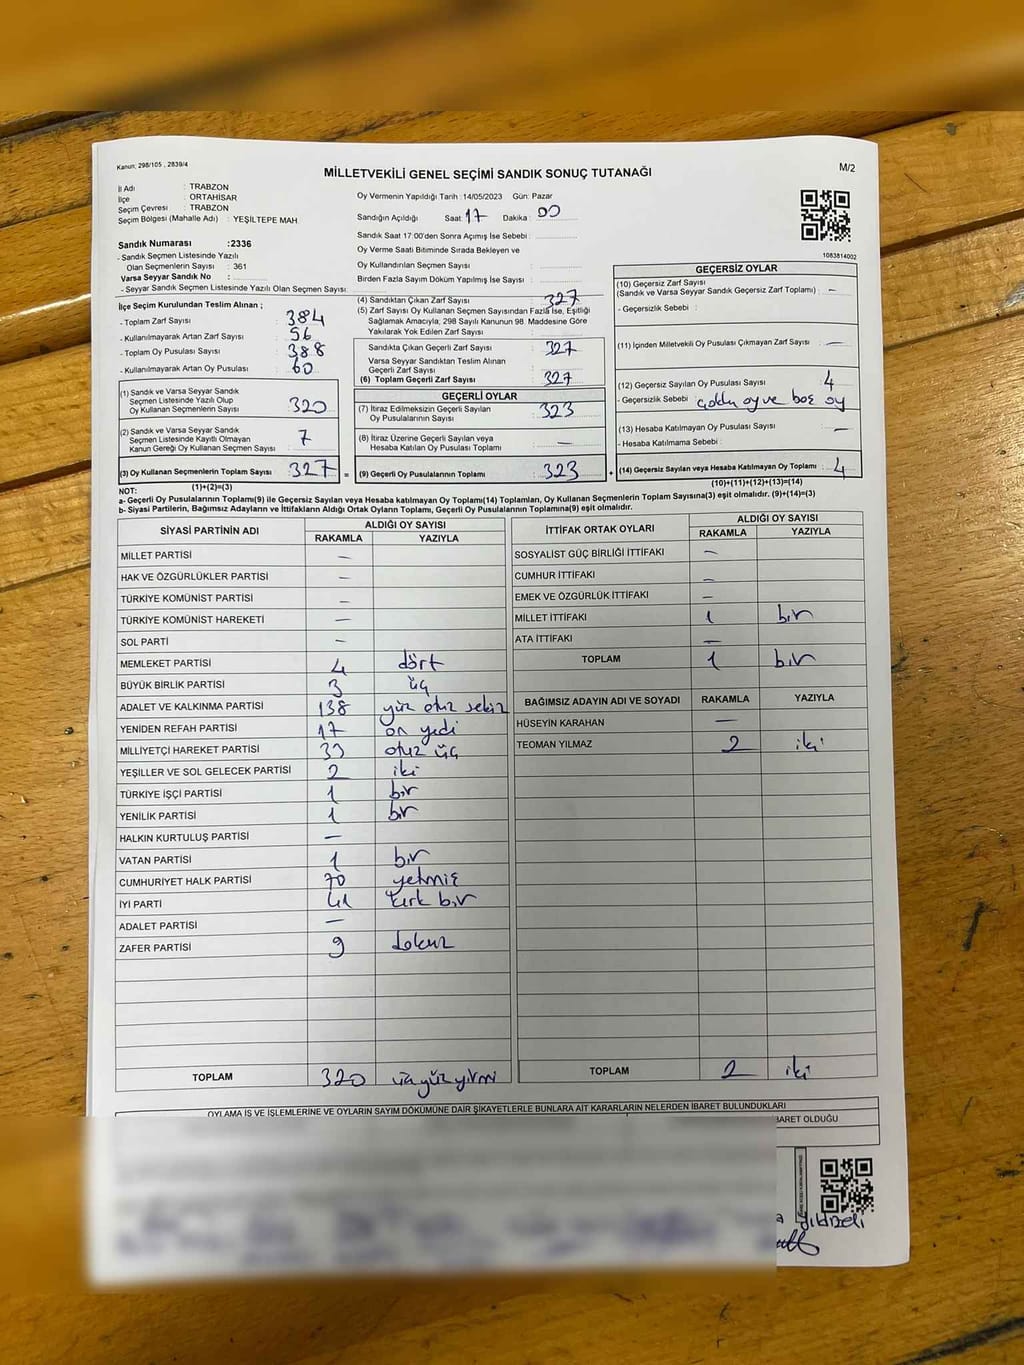 Kanun; 298/105 , 2839/4
MİLLETVEKİLİ GENEL SEÇİMİ SANDIK SONUÇ TUTANAĞI
M/2
İl Adı : TRABZON
İlçe : ORTAHİSAR
Seçim Çevresi : TRABZON
Seçim Bölgesi (Mahalle Adı) : YEŞİLTEPE MAH
Sandık Numarası :2336
- Sandık Seçmen Listesinde Yazılı
Olan Seçmenlerin Sayısı : 361
Varsa Seyyar Sandık No :
- Seyyar Seçmen Listesinde Yazılı Olan Seçmen Sayısı:
Oy Vermenin Yapıldığı Tarih :14/05/2023 Gün: Pazar
Sandığın Açıldığı Saat: 17 Dakika : 00
Sandık Saat 17:00'den Sonra Açımış İse Sebebi :
Oy Verme Saati Bitiminde Sırada Bekleyen ve
Oy Kullandırılan Seçmen Sayısı :
Birden Fazla Sayım Döküm Yapılmış İse Sayısı :
1083814002
İlçe Seçim Kurulundan Teslim Alınan ;
- Toplam Zarf Sayısı : 384
- Kullanılmayarak Artan Zarf Sayısı : 56
- Toplam Oy Pusulası Sayısı : 388
- Kullanılmayarak Artan Oy Pusulası : 60
(1) Sandık ve Varsa Seyyar Sandık
Seçmen Listesinde Yazılı Olup
Oy Kullanan Seçmenlerin Sayısı : 320
(2) Sandık ve Varsa Seyyar Sandık
Seçmen Listesinde Kayıtlı Olmayan
Kanun Gereği Oy Kullanan Seçmen Sayısı : 7
(3) Oy Kullanan Seçmenlerin Toplam Sayısı : 327 =
(1)+(2)=(3)
(4) Sandıktan Çıkan Zarf Sayısı : 327
(5) Zarf Sayısı Oy Kullanan Seçmen Sayısından Fazla İse, Eşitliği
Sağlamak Amacıyla, 298 Sayılı Kanunun 98. Maddesine Göre
Yakılarak Yok Edilen Zarf Sayısı :
Sandıkta Çıkan Geçerli Zarf Sayısı : 327
Varsa Seyyar Sandıktan Teslim Alınan
Geçerli Zarf Sayısı :
(6) Toplam Geçerli Zarf Sayısı : 327
GEÇERLİ OYLAR
(7) İtiraz Edilmeksizin Geçerli Sayılan
Oy Pusulalarının Sayısı : 323
(8) İtiraz Üzerine Geçerli Sayılan veya
Hesaba Katılan Oy Pusulası Toplamı : —
(9) Geçerli Oy Pusulalarının Toplamı : 323 +
GEÇERSİZ OYLAR
(10) Geçersiz Zarf Sayısı
(Sandık ve Varsa Seyyar Sandık Geçersiz Zarf Toplamı) : —
- Geçersizlik Sebebi :
(11) İçinden Milletvekili Oy Pusulası Çıkmayan Zarf Sayısı : —
(12) Geçersiz Sayılan Oy Pusulası Sayısı : 4
- Geçersizlik Sebebi : çoklu oy ve boş oy
(13) Hesaba Katılmayan Oy Pusulası Sayısı : —
- Hesaba Katılmama Sebebi :
(14) Geçersiz Sayılan veya Hesaba Katılmayan Oy Toplamı : 4
(10)+(11)+(12)+(13)=(14)
NOT:
a- Geçerli Oy Pusulalarının Toplamı(9) ile Geçersiz Sayılan veya Hesaba Katılmayan Oy Toplamı(14) Toplamları, Oy Kullanan Seçmenlerin Toplam Sayısına(3) eşit olmalıdır. (9)+(14)=(3)
b- Siyasi Partilerin, Bağımsız Adayların ve İttifakların Aldığı Ortak Oyların Toplamı, Geçerli Oy Pusulalarının Toplamına(9) eşit olmalıdır.
SİYASİ PARTİNİN ADI ALDIĞI OY SAYISI
RAKAMLA YAZIYLA
MİLLET PARTİSİ —
HAK VE ÖZGÜRLÜKLER PARTİSİ —
TÜRKİYE KOMÜNİST PARTİSİ —
TÜRKİYE KOMÜNİST HAREKETİ —
SOL PARTİ —
MEMLEKET PARTİSİ 4 dört
BÜYÜK BİRLİK PARTİSİ 3 üç
ADALET VE KALKINMA PARTİSİ 138 yüz otuz sekiz
YENİDEN REFAH PARTİSİ 17 on yedi
MİLLİYETÇİ HAREKET PARTİSİ 33 otuz üç
YEŞİLLER VE SOL GELECEK PARTİSİ 2 iki
TÜRKİYE İŞÇİ PARTİSİ 1 bir
YENİLİK PARTİSİ 1 bir
HALKIN KURTULUŞ PARTİSİ —
VATAN PARTİSİ 1 bir
CUMHURİYET HALK PARTİSİ 70 yetmiş
İYİ PARTİ 41 kırk bir
ADALET PARTİSİ —
ZAFER PARTİSİ 9 dokuz
TOPLAM 320 üçyüzyirmi
İTTİFAK ORTAK OYLARI ALDIĞI OY SAYISI
RAKAMLA YAZIYLA
SOSYALİST GÜÇ BİRLİĞİ İTTİFAKI —
CUMHUR İTTİFAKI —
EMEK VE ÖZGÜRLÜK İTTİFAKI —
MİLLET İTTİFAKI 1 bir
ATA İTTİFAKI —
TOPLAM 1 bir
BAĞIMSIZ ADAYIN ADI VE SOYADI RAKAMLA YAZIYLA
HÜSEYİN KARAHAN —
TEOMAN YILMAZ 2 iki
TOPLAM 2 iki
OYLAMA İŞ VE İŞLEMLERİNE VE OYLARIN SAYIM DÖKÜMÜNE DAİR ŞİKAYETLERLE BUNLARA AİT KARARLARIN NELERDEN İBARET BULUNDUKLARI
BARET OLDUĞU